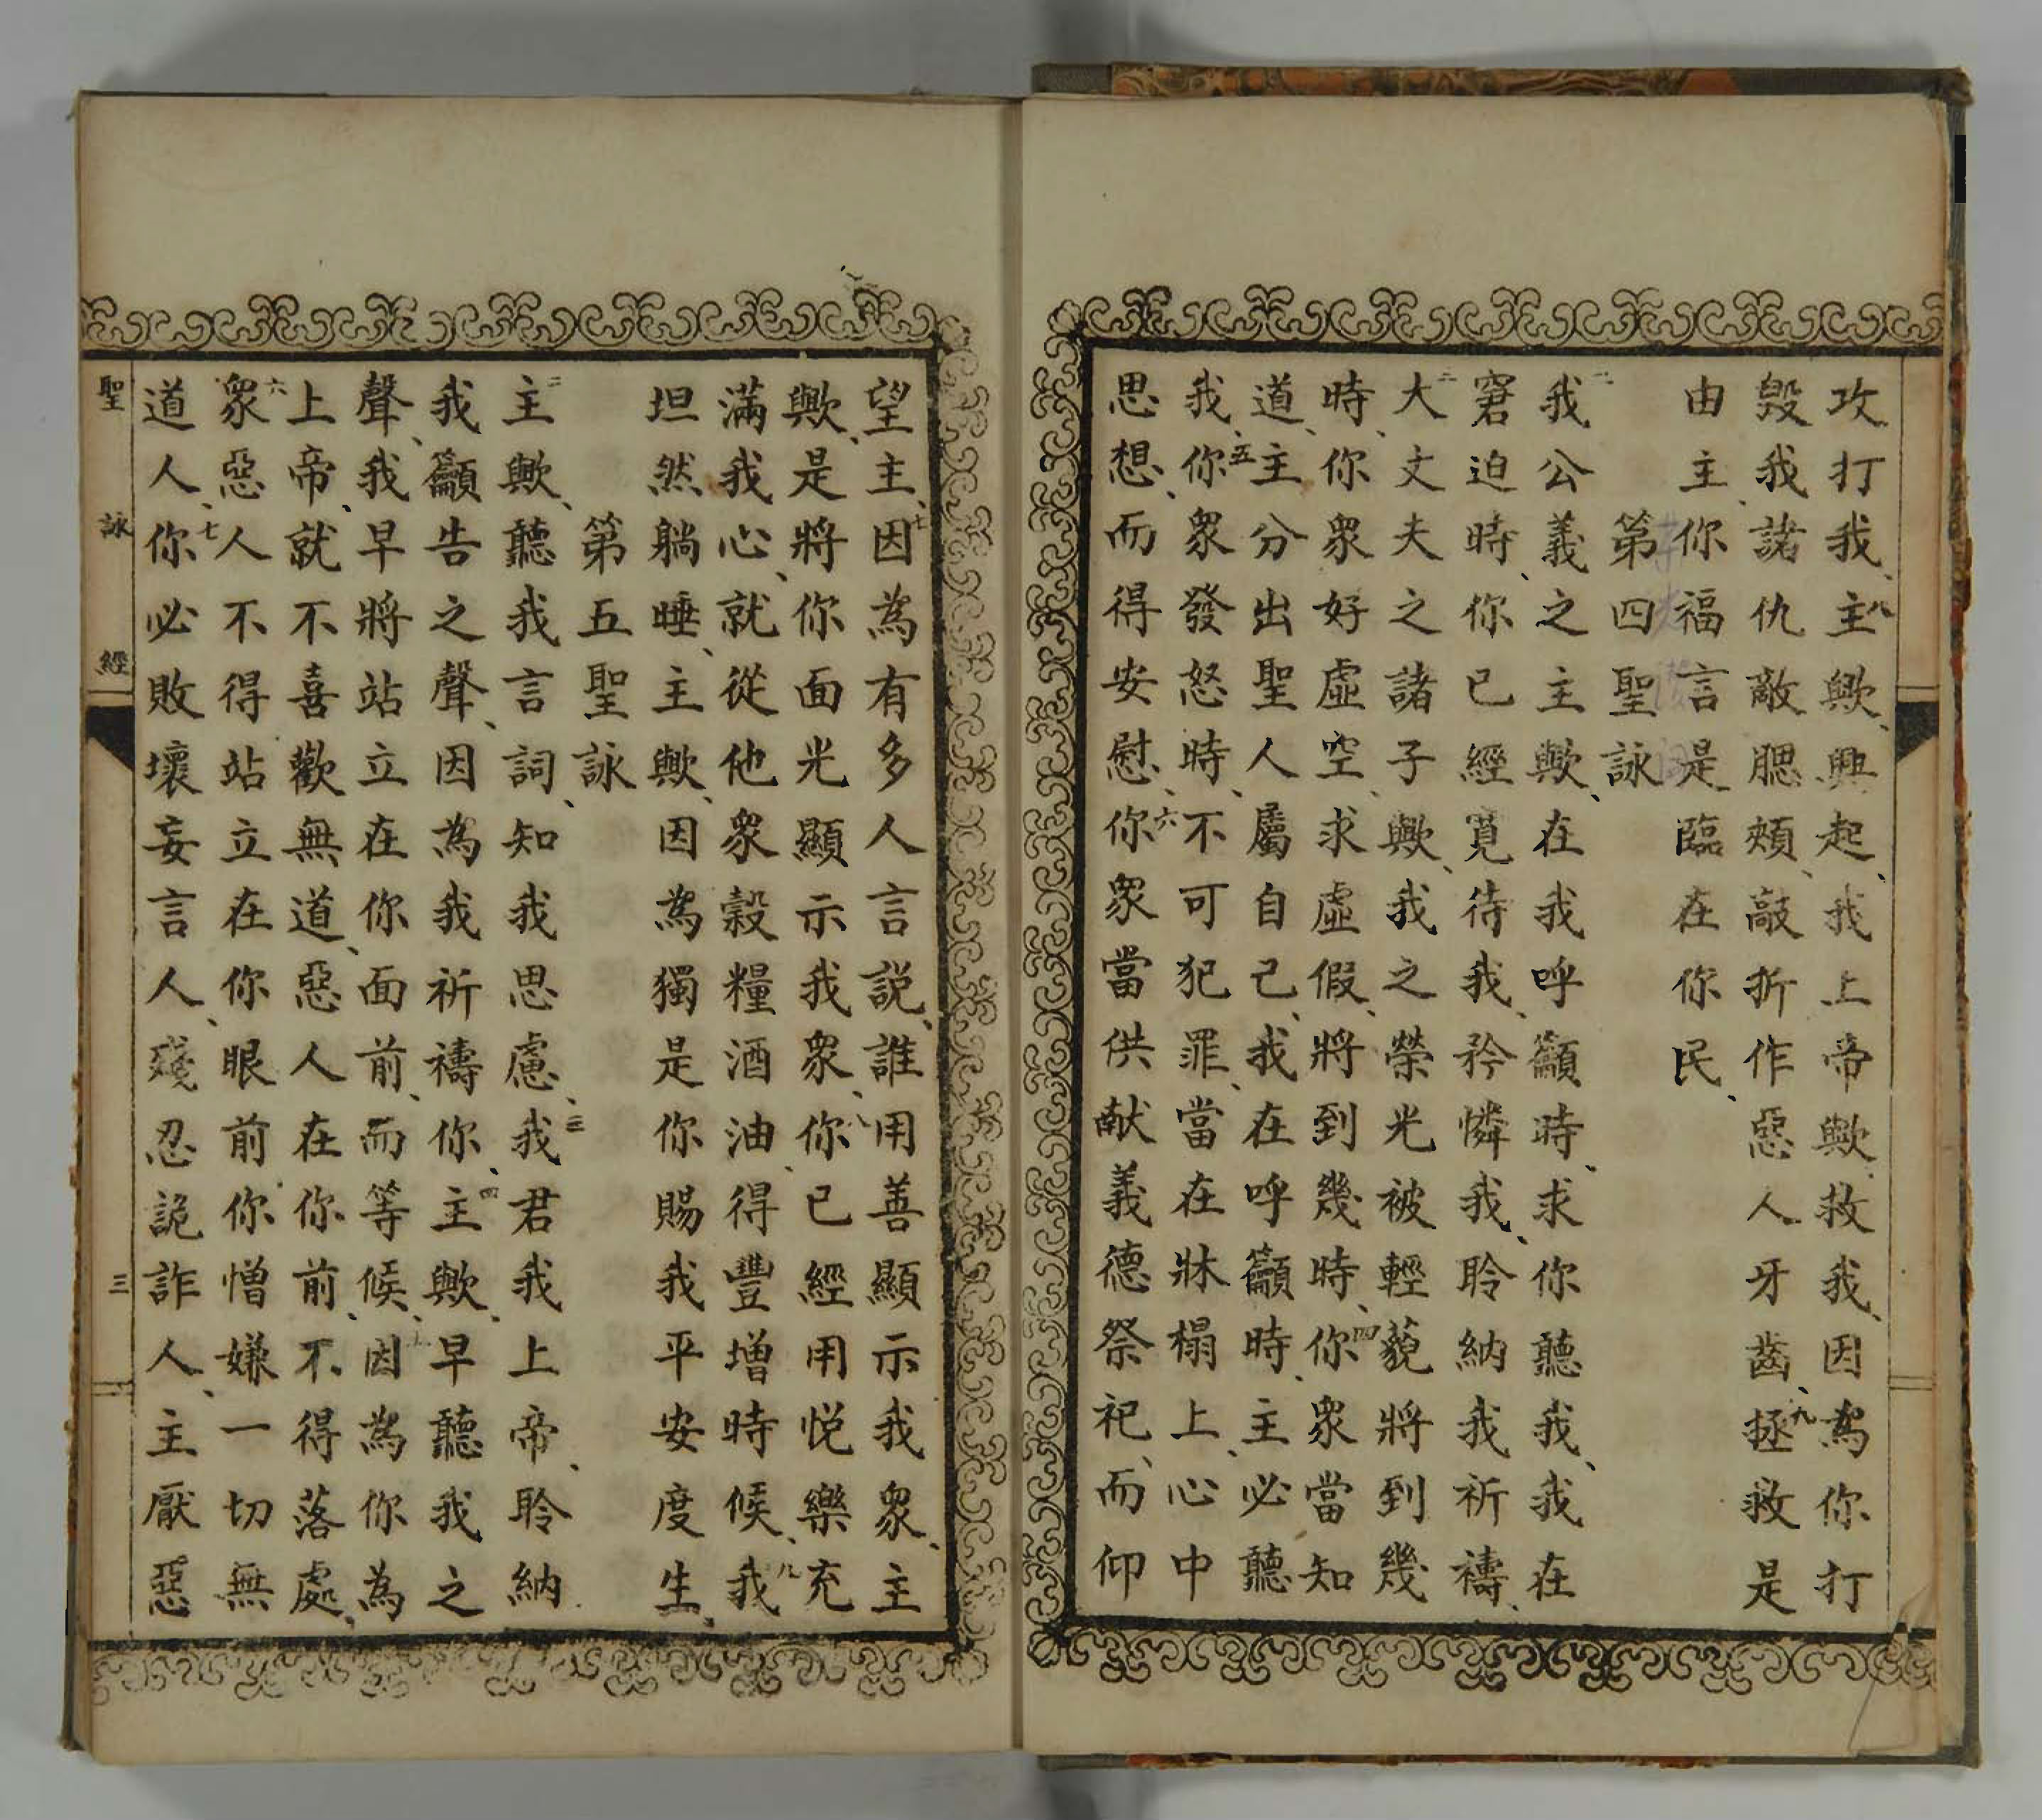 攻打我、八主歟、興起、我上帝歟救我、因為你打
毀我諸仇敵腮頰、敲折作惡人牙齒、九拯救是
由主、你福言是臨在你民、
第四聖詠
二我公義之主歟、在我呼籲時、求你聽我、我在
窘迫時、你已經寬待我、矜憐我、聆納我祈禱、
三大丈夫之諸子歟、我之榮光被輕藐將到幾
時、你眾好虛空、求虛假、將到幾時、四你眾當知
道、主分出聖人屬自己、我在呼籲時、主必聽
我、五你眾發怒時、不可犯罪、當在牀榻上、心中
思想、而得安慰、六你眾當供献義德祭祀、而仰
望主、七因為有多人言說、誰用善顯示我眾、主
歟、是將你面光顯示我眾、八你已經用悅樂充
滿我心、就從他眾穀糧酒油、得豐增時候、九我
坦然躺睡、主歟、因為獨是你賜我平安度生、
第五聖詠
二主歟、聽我言詞、知我思慮、三我君我上帝、聆納
我籲告之聲、因為我祈禱你、四主歟、早聽我之
聲、我早將站立在你面前、而等候、五因為你為
上帝、就不喜歡無道、惡人在你前、不得落處、
六眾惡人不得站立在你眼前你憎嫌一切無
道人、七你必敗壞妄言人、殘忍詭詐人、主厭惡
聖詠經
三